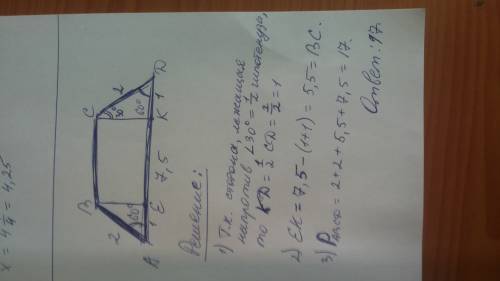 x = 4 1/4 = 4,25
B
C
2
2
30°
60°
60°
A
1
E
7,5
K
1
D
Решение:
1) Т.к. сторона, лежащая
напротив ∠30° = 1/2 гипотенузы,
то KD = 1/2 CD = 2/2 = 1
2) EK = 7,5 - (1+1) = 5,5 = BC.
3) PABCD = 2+2+5,5+7,5 = 17.
Ответ: 17.